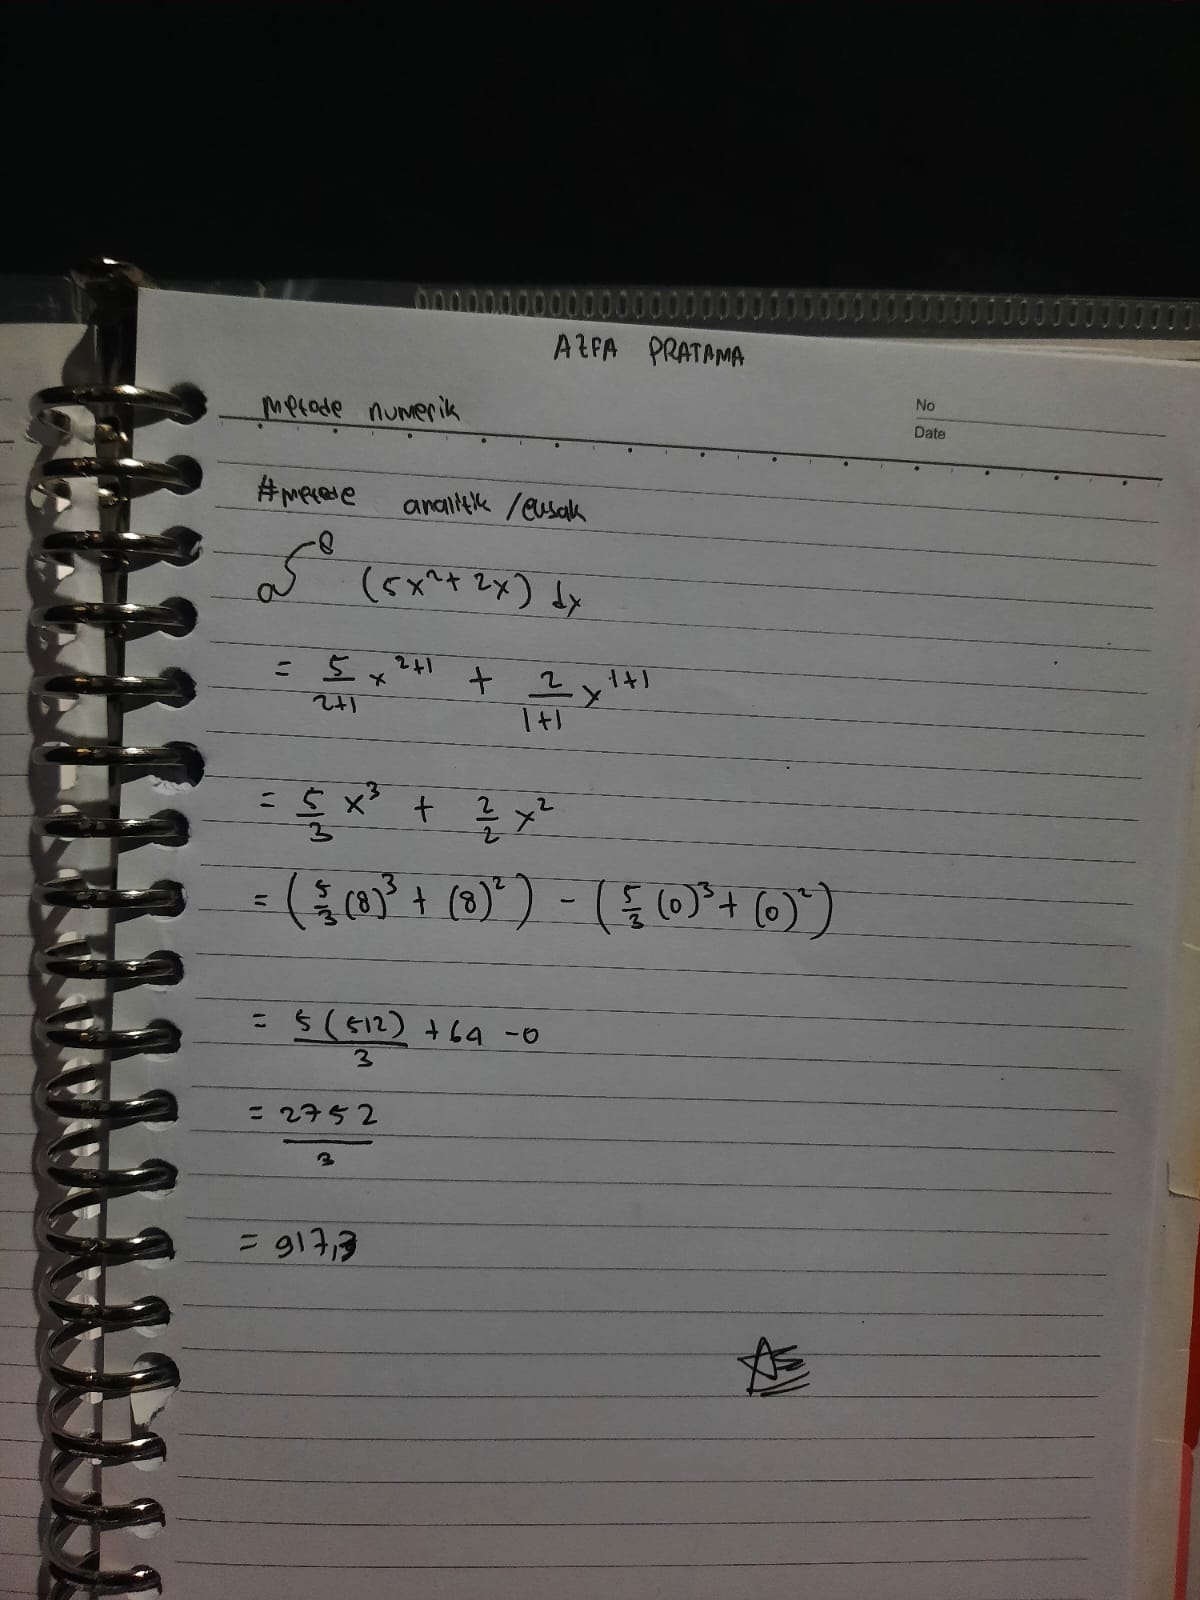 AZFA PRATAMA
No
metode numerik
Date
#metode analitik /eusak
0∫8 (5x²+ 2x) dx
= 5/2+1 x^2+1 + 2/1+1 x^1+1
= 5/3 x³ + 2/2 x²
= (5/3 (8)³ + (8)²) - (5/3 (0)³ + (0)²)
= 5(512)/3 + 64 - 0
= 2752/3
= 917,3